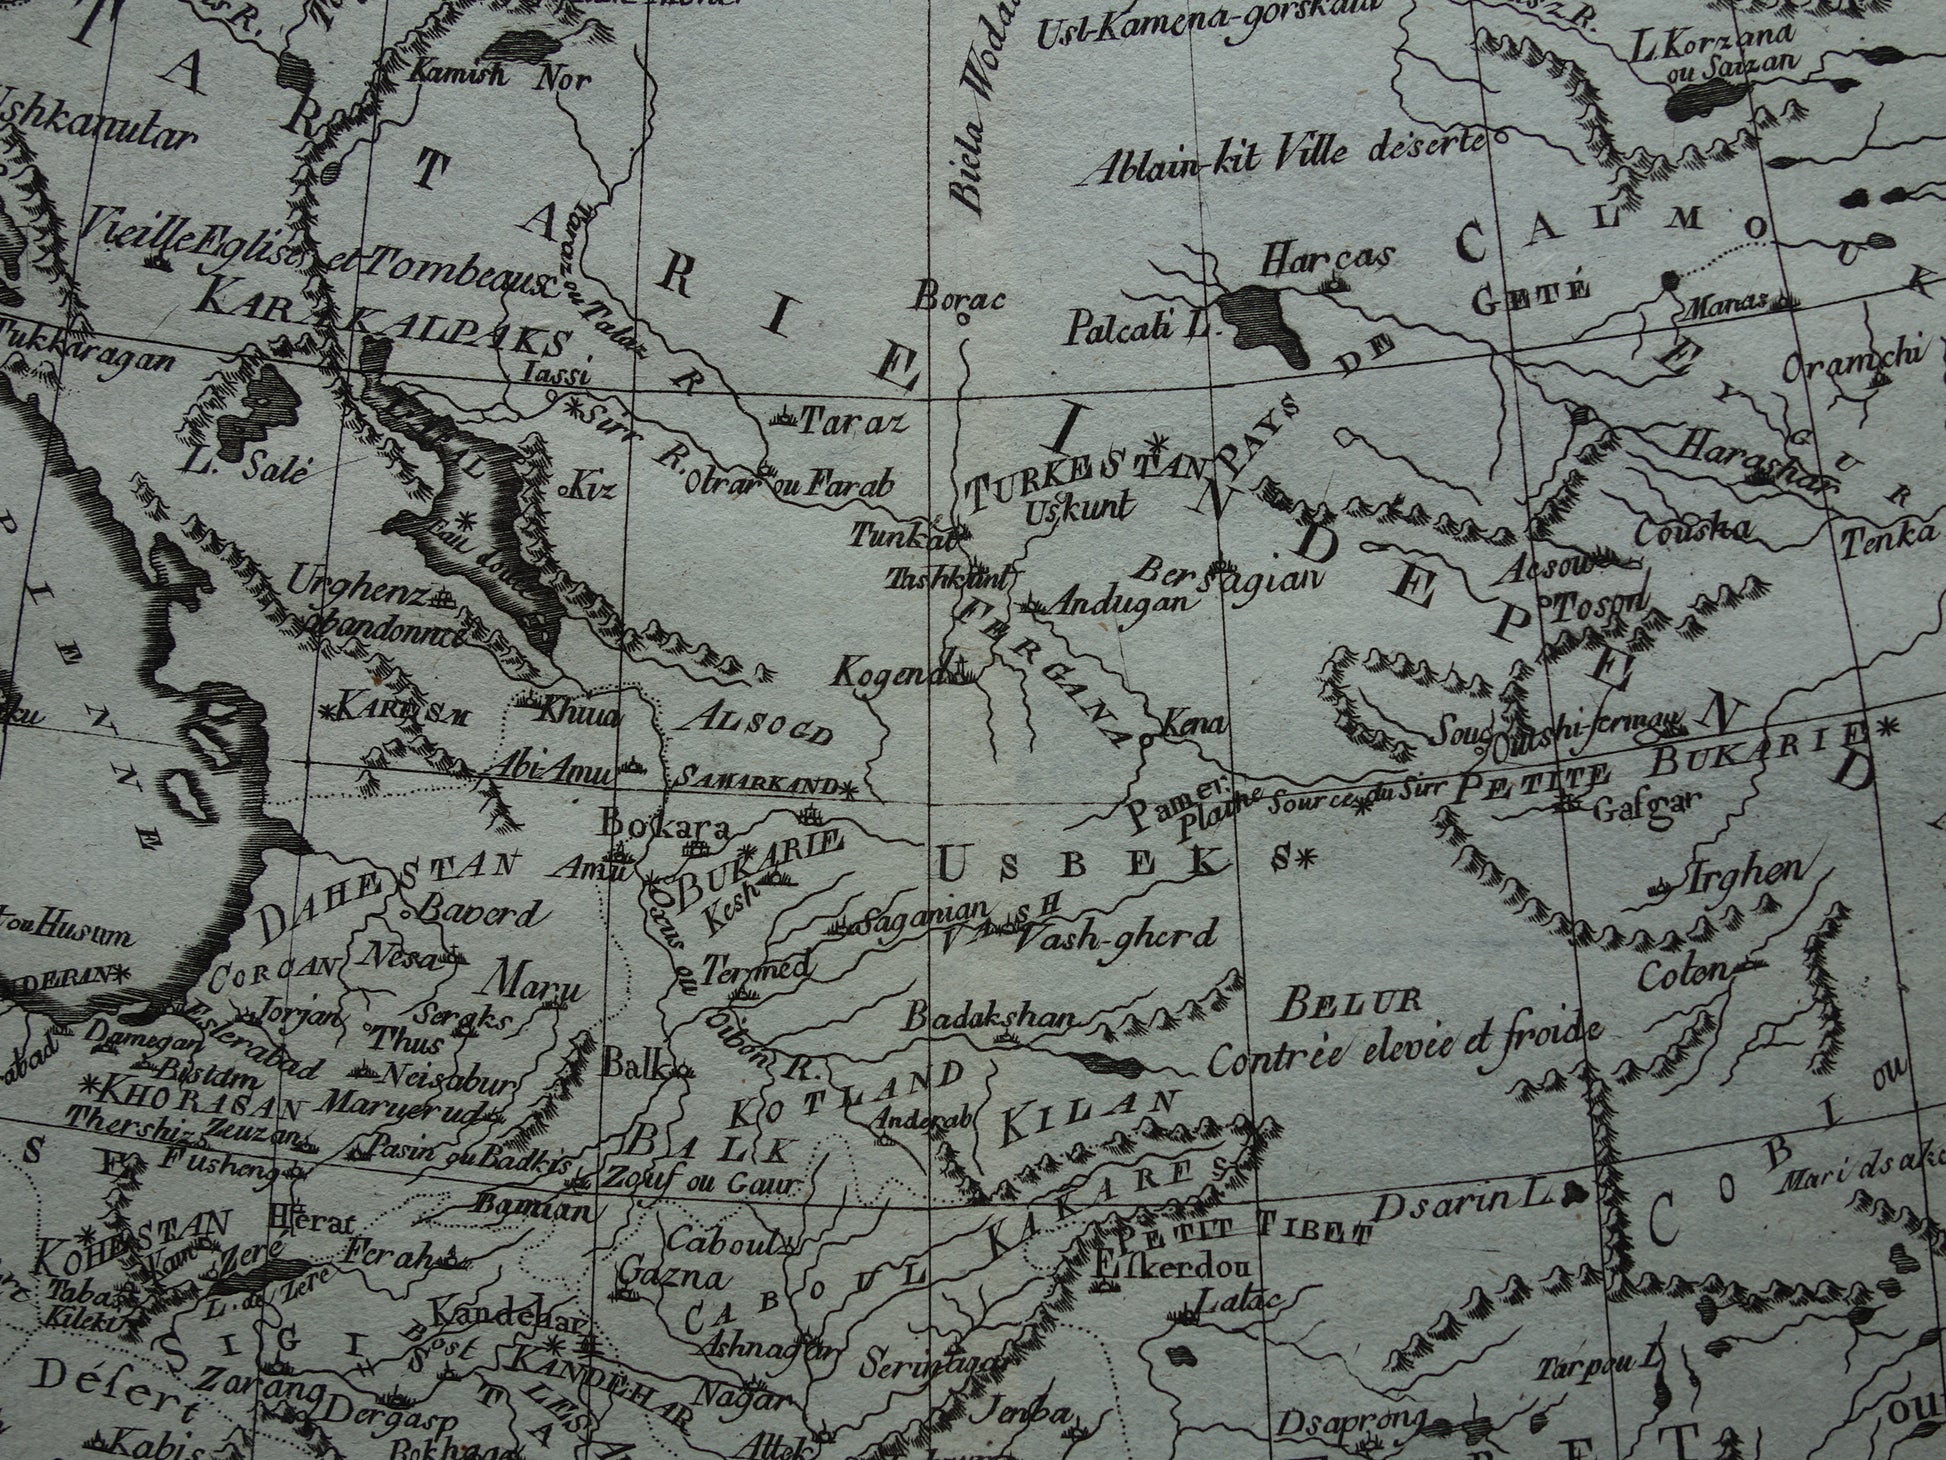 Kamish Nor
Usl-Kamena-gorskaia
L. Korzana
ou Saizan
Biela Woda
Ablain-kit Ville deserte
TARTARIE INDEPEND
Vieille Eglise et Tombeaux
KARAKALPAKS
Taraz ou Talas R
Borac
Harcas
Palcati L.
CALMOUK
GETÉ
Manas
Oramchi
PAYS DE
YGUR
Iassi
Sirr R.
Taraz
Otrar ou Farab
L. Salé
ARAL
Eau douce
Kiz
TURKESTAN
Uskunt
Harashar
Cousha
Tenka
Tunkat
Tashkunt
Bersagian
Andugan
Acsou
Tosod
Urghenz
abandonnée
FERGANA
Kogend
KARESM
Khiua
ALSOGD
Kena
Abi Amu
SAMARKAND
Pamer
Plaine
Source du Sirr
PETITE BUKARIE
Gasgar
Bokara
Amu
BUKARIE
Kesh
USBEKS
Irghen
DAHESTAN
Baverd
Oxus ou Gibon R.
Saganian
VASH
Vash-gherd
Nesa
Termed
CORCAN
Jorjan
Maru
Coten
Esterabad
Seraks
Thus
Badakshan
BELUR
Contrée elevée et froide
Damegan
Bistam
Neisabur
Balk
KHORASAN
Maruerud
KOTLAND
Anderab
KILAN
Thershiz
Zeuzan
Fusheng
Pasin ou Badkis
BALK
Zouf ou Gaur
KAKARES
COBI ou
Dsarin L.
PETIT TIBET
Bamian
KOHESTAN
Herat
Zeré
Ferah
L. de Zeré
Caboul
CABOUL
Gazna
Eskerdou
Latac
Tabas
Kileki
Kandehar
KANDEHAR
Ashnagar
Bost
SIGISTAN
Zarang
Dergasp
Nagar
Attek
Jenba
Dsaprong
Désert
Kabis
LES
ou